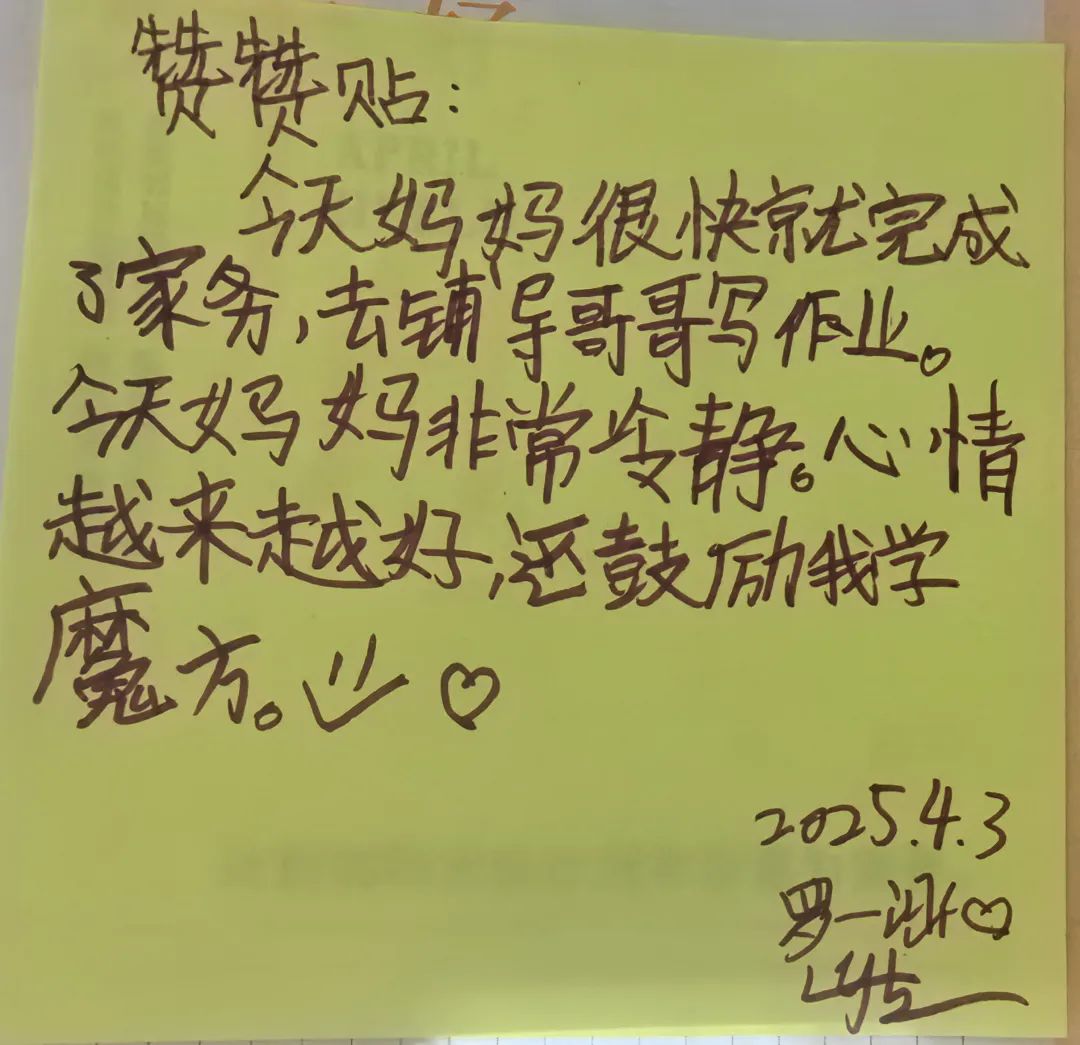 赞赞贴：
今天妈妈很快就完成
了家务，去铺导哥哥写作业。
今天妈妈非常冷静。心情
越来越好，还鼓励我学
魔方。
2025.4.3
罗一